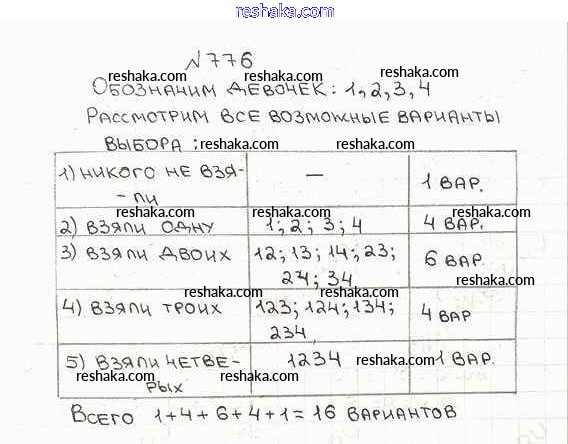 reshaka.com
№776
reshaka.com reshaka.com
Обозначим девочек: 1, 2, 3, 4
Рассмотрим все возможные варианты
выбора: reshaka.com reshaka.com
1) никого не взя- — 1 вар.
- ли
reshaka.com reshaka.com reshaka.com
2) взяли одну 1; 2; 3; 4 4 вар.
3) взяли двоих 12; 13; 14; 23; 6 вар.
24; 34
reshaka.com reshaka.com reshaka.com
4) взяли троих 123; 124; 134; 4 вар
234
reshaka.com reshaka.com
5) взяли четве- 1234 reshaka.com 1 вар.
reshaka.com рых reshaka.com
Всего 1+4+6+4+1=16 вариантов
reshaka.com reshaka.com